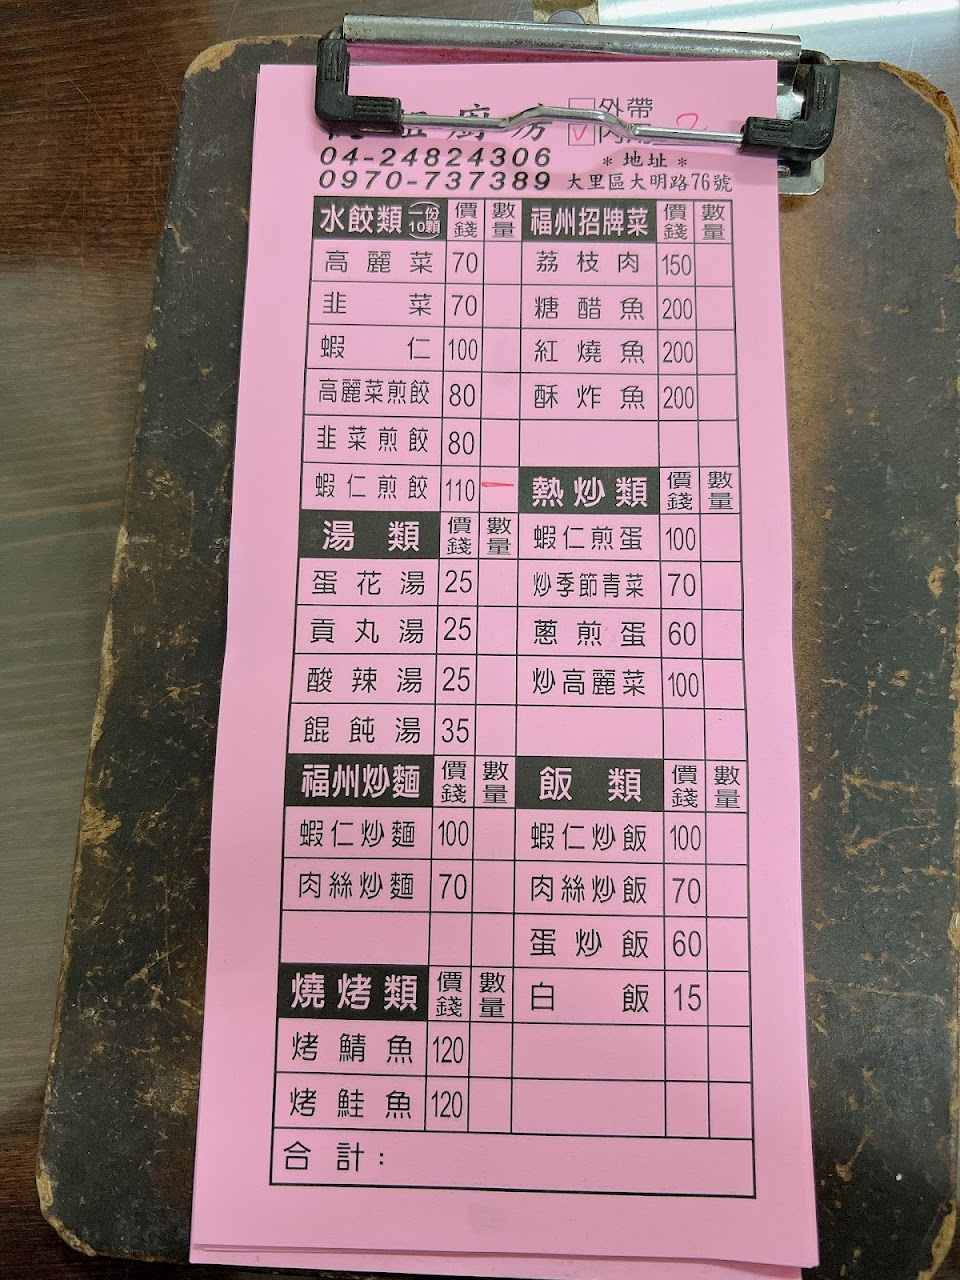 廚房
外帶
✓
04-24824306
＊地址＊
0970-737389
大里區大明路76號
水餃類 一份10顆 價錢 數量
高麗菜 70
韭菜 70
蝦仁 100
高麗菜煎餃 80
韭菜煎餃 80
蝦仁煎餃 110 一
湯類 價錢 數量
蛋花湯 25
貢丸湯 25
酸辣湯 25
餛飩湯 35
福州炒麵 價錢 數量
蝦仁炒麵 100
肉絲炒麵 70
燒烤類 價錢 數量
烤鯖魚 120
烤鮭魚 120
福州招牌菜 價錢 數量
荔枝肉 150
糖醋魚 200
紅燒魚 200
酥炸魚 200
熱炒類 價錢 數量
蝦仁煎蛋 100
炒季節青菜 70
蔥煎蛋 60
炒高麗菜 100
飯類 價錢 數量
蝦仁炒飯 100
肉絲炒飯 70
蛋炒飯 60
白飯 15
合計：